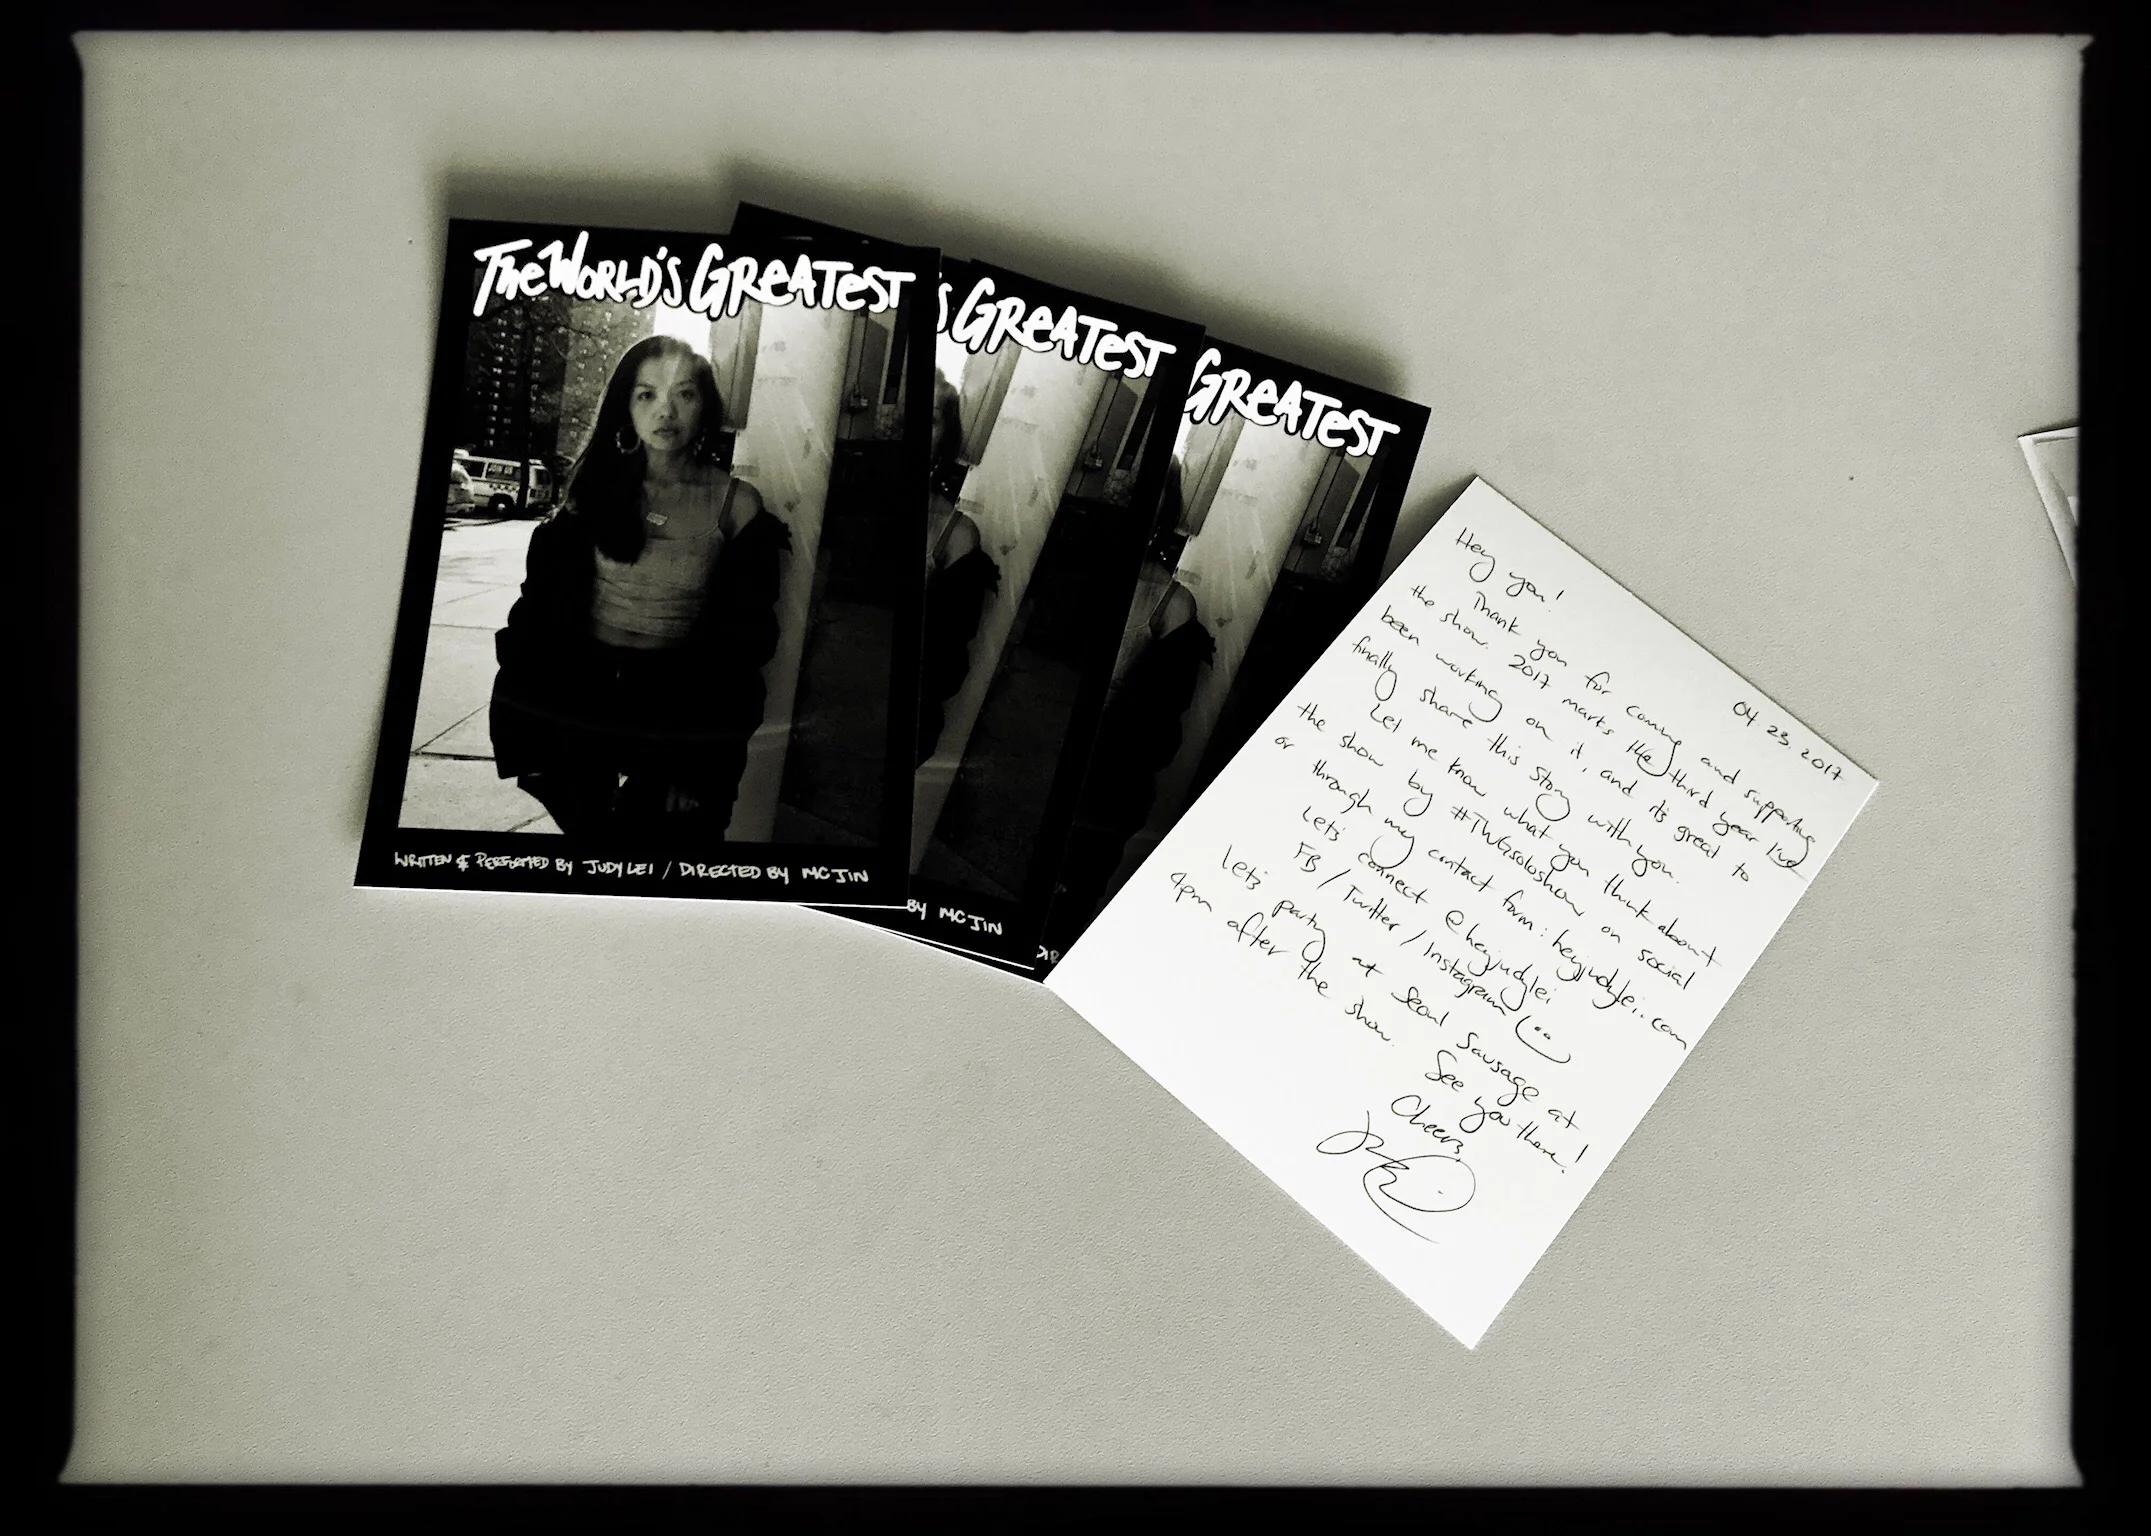 The WORLD'S GREATEST
JOIN US
WRITTEN & PERFORMED BY JUDY LEI / DIRECTED BY MC JIN
'S GREATEST
BY MC JIN
GREATEST
DIR
04 23 2017
Hey you!
Thank you for coming and supporting
the show. 2017 marks the third year I've
been working on it, and it's great to
finally share this story with you.
Let me know what you think about
the show by #TWGsoloshow on social
or through my contact form: heyjudylei.com
Let's connect @heyjudylei
FB / Twitter / Instagram (··
Let's party at Seoul Sausage at
4pm after the show. See you there!
Cheers,